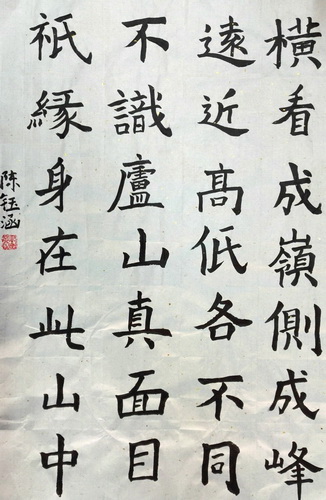 橫看成嶺側成峰
遠近髙低各不同
不識廬山真面目
祇緣身在此山中
陈钰涵